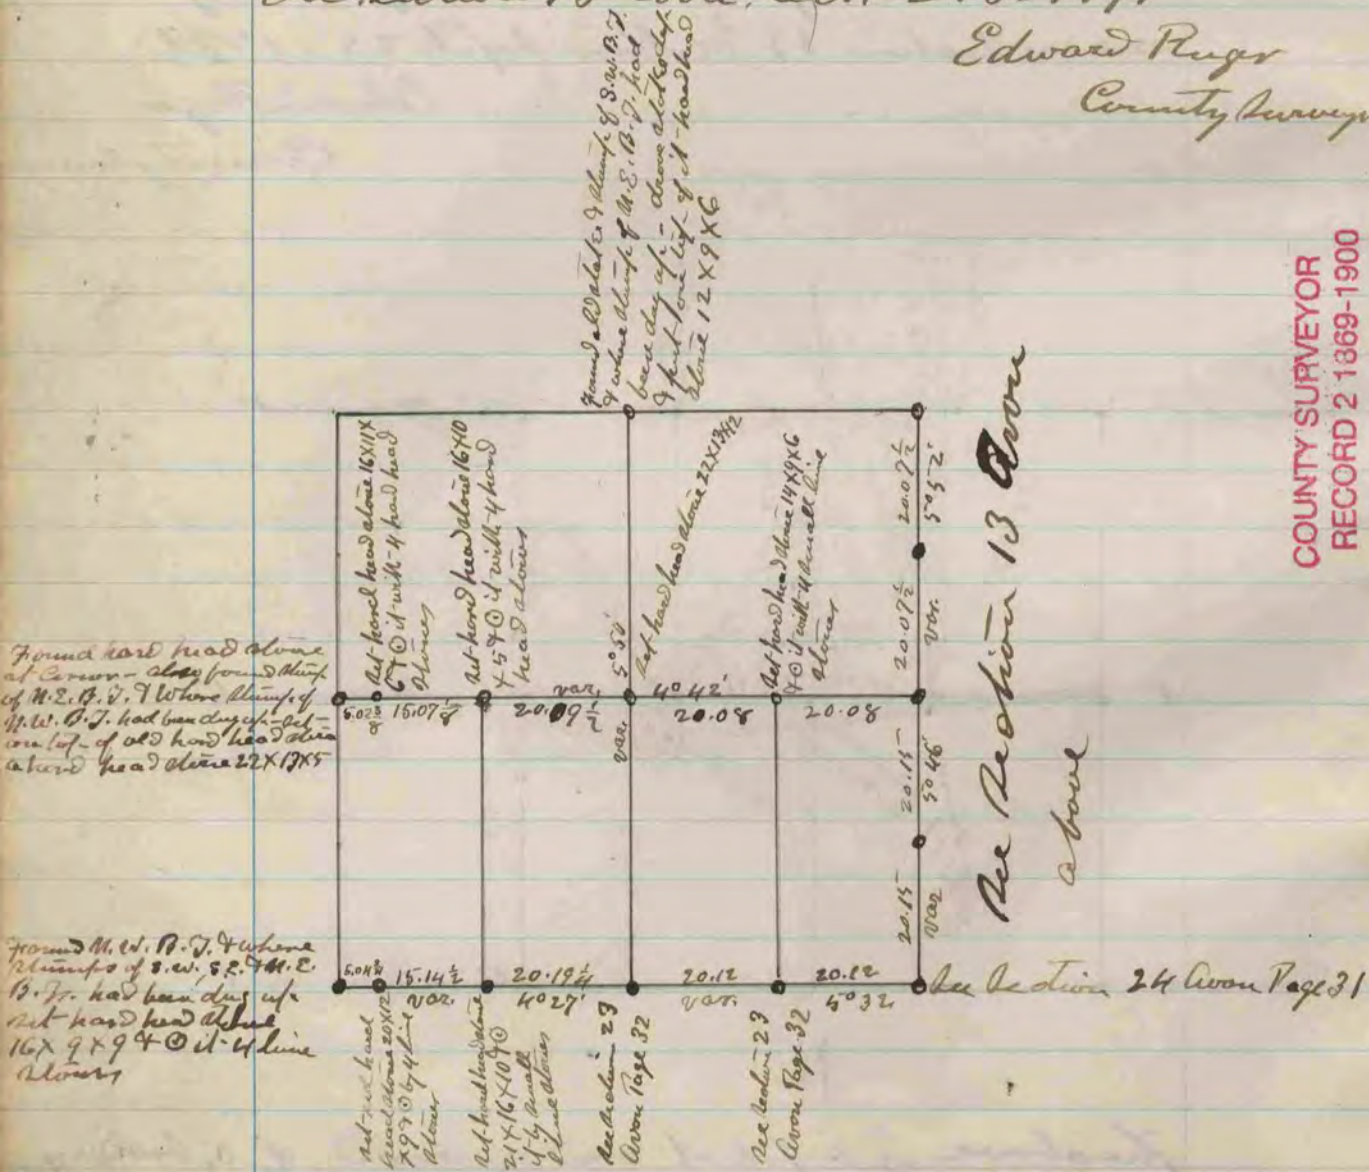 Edward Ruger
County Surveyor
COUNTY SURVEYOR
RECORD 2 1869-1900
Found old stake & stump of S.W.B.T.
& where stump of N.E.B.T. had
been dug up - drove stake deep
& put on top of it hard head
stone 12X9X6
Set hard head stone 16X11X
6 & ⊙ it with 4 hard head
stones
Set hard head stone 16X10
X5 & ⊙ it with 4 hard
head stones
Set hard head stone 22X13X12
Set hard head stone 14X9X6
& ⊙ it with 4 small lime
stones
20.07½
5°52'
20.07½
var.
See Section 13 Avon
above
Found hard head stone
at Corner - also found stump
of N.E.B.T. & where stump of
N.W.B.T. had been dug up - set
on top of old hard head stone
a hard head stone 22X13X5
5.02⅜
15.07⅛
var. 5°50'
20.09½
4°42'
20.08
20.08
var.
20.15
5°46'
20.15
var
Found N.W.B.T. & where
stumps of S.W., S.E. & N.E.
B.Ts. had been dug up
set hard head stone
16X9X9 & ⊙ it 4 lime
stones
5.04¾
15.14½
20.19¼
20.12
20.12
var.
4°27'
var.
5°32
See Section 24 Avon Page 31
Set hard
head stone 20X12
X9 & ⊙ by 4 lime
stones
Set hard head stone
21X16X10 & ⊙
it by small
lime stones
See Section 23
Avon Page 32
See Section 23
Avon Page 32